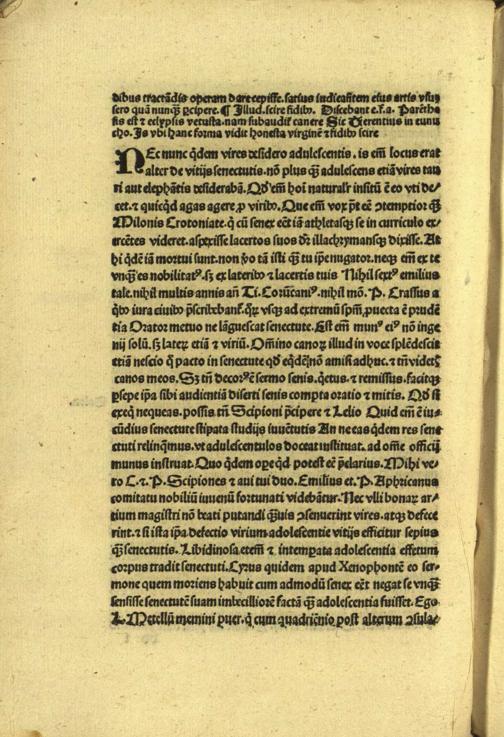 dibus tractādis operam dare cepisse. satius indicasītem eius artis vsuȝ
sero quā nunꝙ̄ ꝑcipere. ¶ Illud. scire fidibꝰ. Discebant e.f.a. Parētheꝰ
sis est ⁊ eclypsis vetusta. nam subaudit̄ canere Sic Terentius in eunu
cho. Is vbi hanc forma vidit honesta virginē ⁊ fidibꝰ scire
NEc nunc q̇dem vires desidero adulescentis. is em̄ locus erat
alter de vitijs senectutis. nō plus ꝙ̄ adulescens etiā vires tau
ri aut elephātis desiderabā. Qḋ em̄ hoī natural'r insitū ē eo vti de⸗
cet. ⁊ quicq̇d agas agere ꝓ viribꝰ. Que em̄ vox pt̄ eē ꝯtemptior ꝙ̄
Milonis Crotoniate. q̇ cū senex eēt iā athletasꝙ se in curriculo ex⸗
ercētes videret. aspexisse lacertos suos dr̄ illachrymansꝙ dixisse. At
hi q̇dē iā mortui sunt. non ꝟo tā isti ꝙ̄ tu ip̄e nugator. neqꝫ em̄ ex te
vnꝙ̄ es nobilitatꝰ. sꝫ ex lateribꝰ ⁊ lacertis tuis Nihil sextꝰ emilius
tale. nihil multis annis an̄ Ti. Corūcaniꝰ. nihil mō. P. Crassus a
q̇bꝰ iura ciuibꝰ p̄scribebant̄. qꝛ vsqꝫ ad extremū spm̄ ꝓuecta ē prudē
tia Orator metuo ne lāguescat senectute. Est em̄ munꝰ eiꝰ nō inge
nij solū. sꝫ laterꝫ etiā ⁊ viriū. Om̄ino canoꝝ illud in voce splēdescit
etiā nescio q̊ pacto in senectute qḋ eq̇dē nō amisi adhuc. ⁊ tn̄ videtꝭ
canos meos. Sꝫ tn̄ decorꝰ ē sermo senis. q̇etus. ⁊ remissus. facitqꝫ
ꝑsepe ip̄a sibi audientiā diserti senis compta oratio ⁊ mitis. Qḋ si
exeq̇ nequeas. possis tn̄ Scipioni p̄cipere ⁊ Lelio Quid em̄ ē iu⸗
cūdius senectute stipata studijs iuuētutis An ne eas q̇dem res sene
ctuti relinq̇mus. vt adulescentulos doceat instituat. ad om̄e officij
munus instruat. Quo q̇dem oꝑe qḋ potest eē p̄clarius. Mihi ve⸗
ro C. ⁊. P. Scipiones ⁊ aui tui duo. Emilius et. P. Aphricanus
comitatu nobiliū iuuenū fortunati videbātur. Nec vlli bonaꝝ ar⸗
tium magistri nō beati putandi ꝙ̄uis ꝯsenuerint vires. atqꝫ defece
rint. ⁊ si ista ip̄a defectio virium adolescentie vitijs efficitur sepius
ꝙ̄ senectutis. Libidinosa etem̄ ⁊ intemꝑata adolescentia effetum
corpus tradit senectuti. Cyrus quidem apud Xenophontē eo ser⸗
mone quem moriens habuit cum admodū senex eēt negat se vnꝙ̄
sensisse senectutē suam imbecilliorē factā ꝙ̄ adolescentia fuisset. Ego
L. Metellū memini puer. q̇ cum quadriēnio post alterum ꝯsula⸗